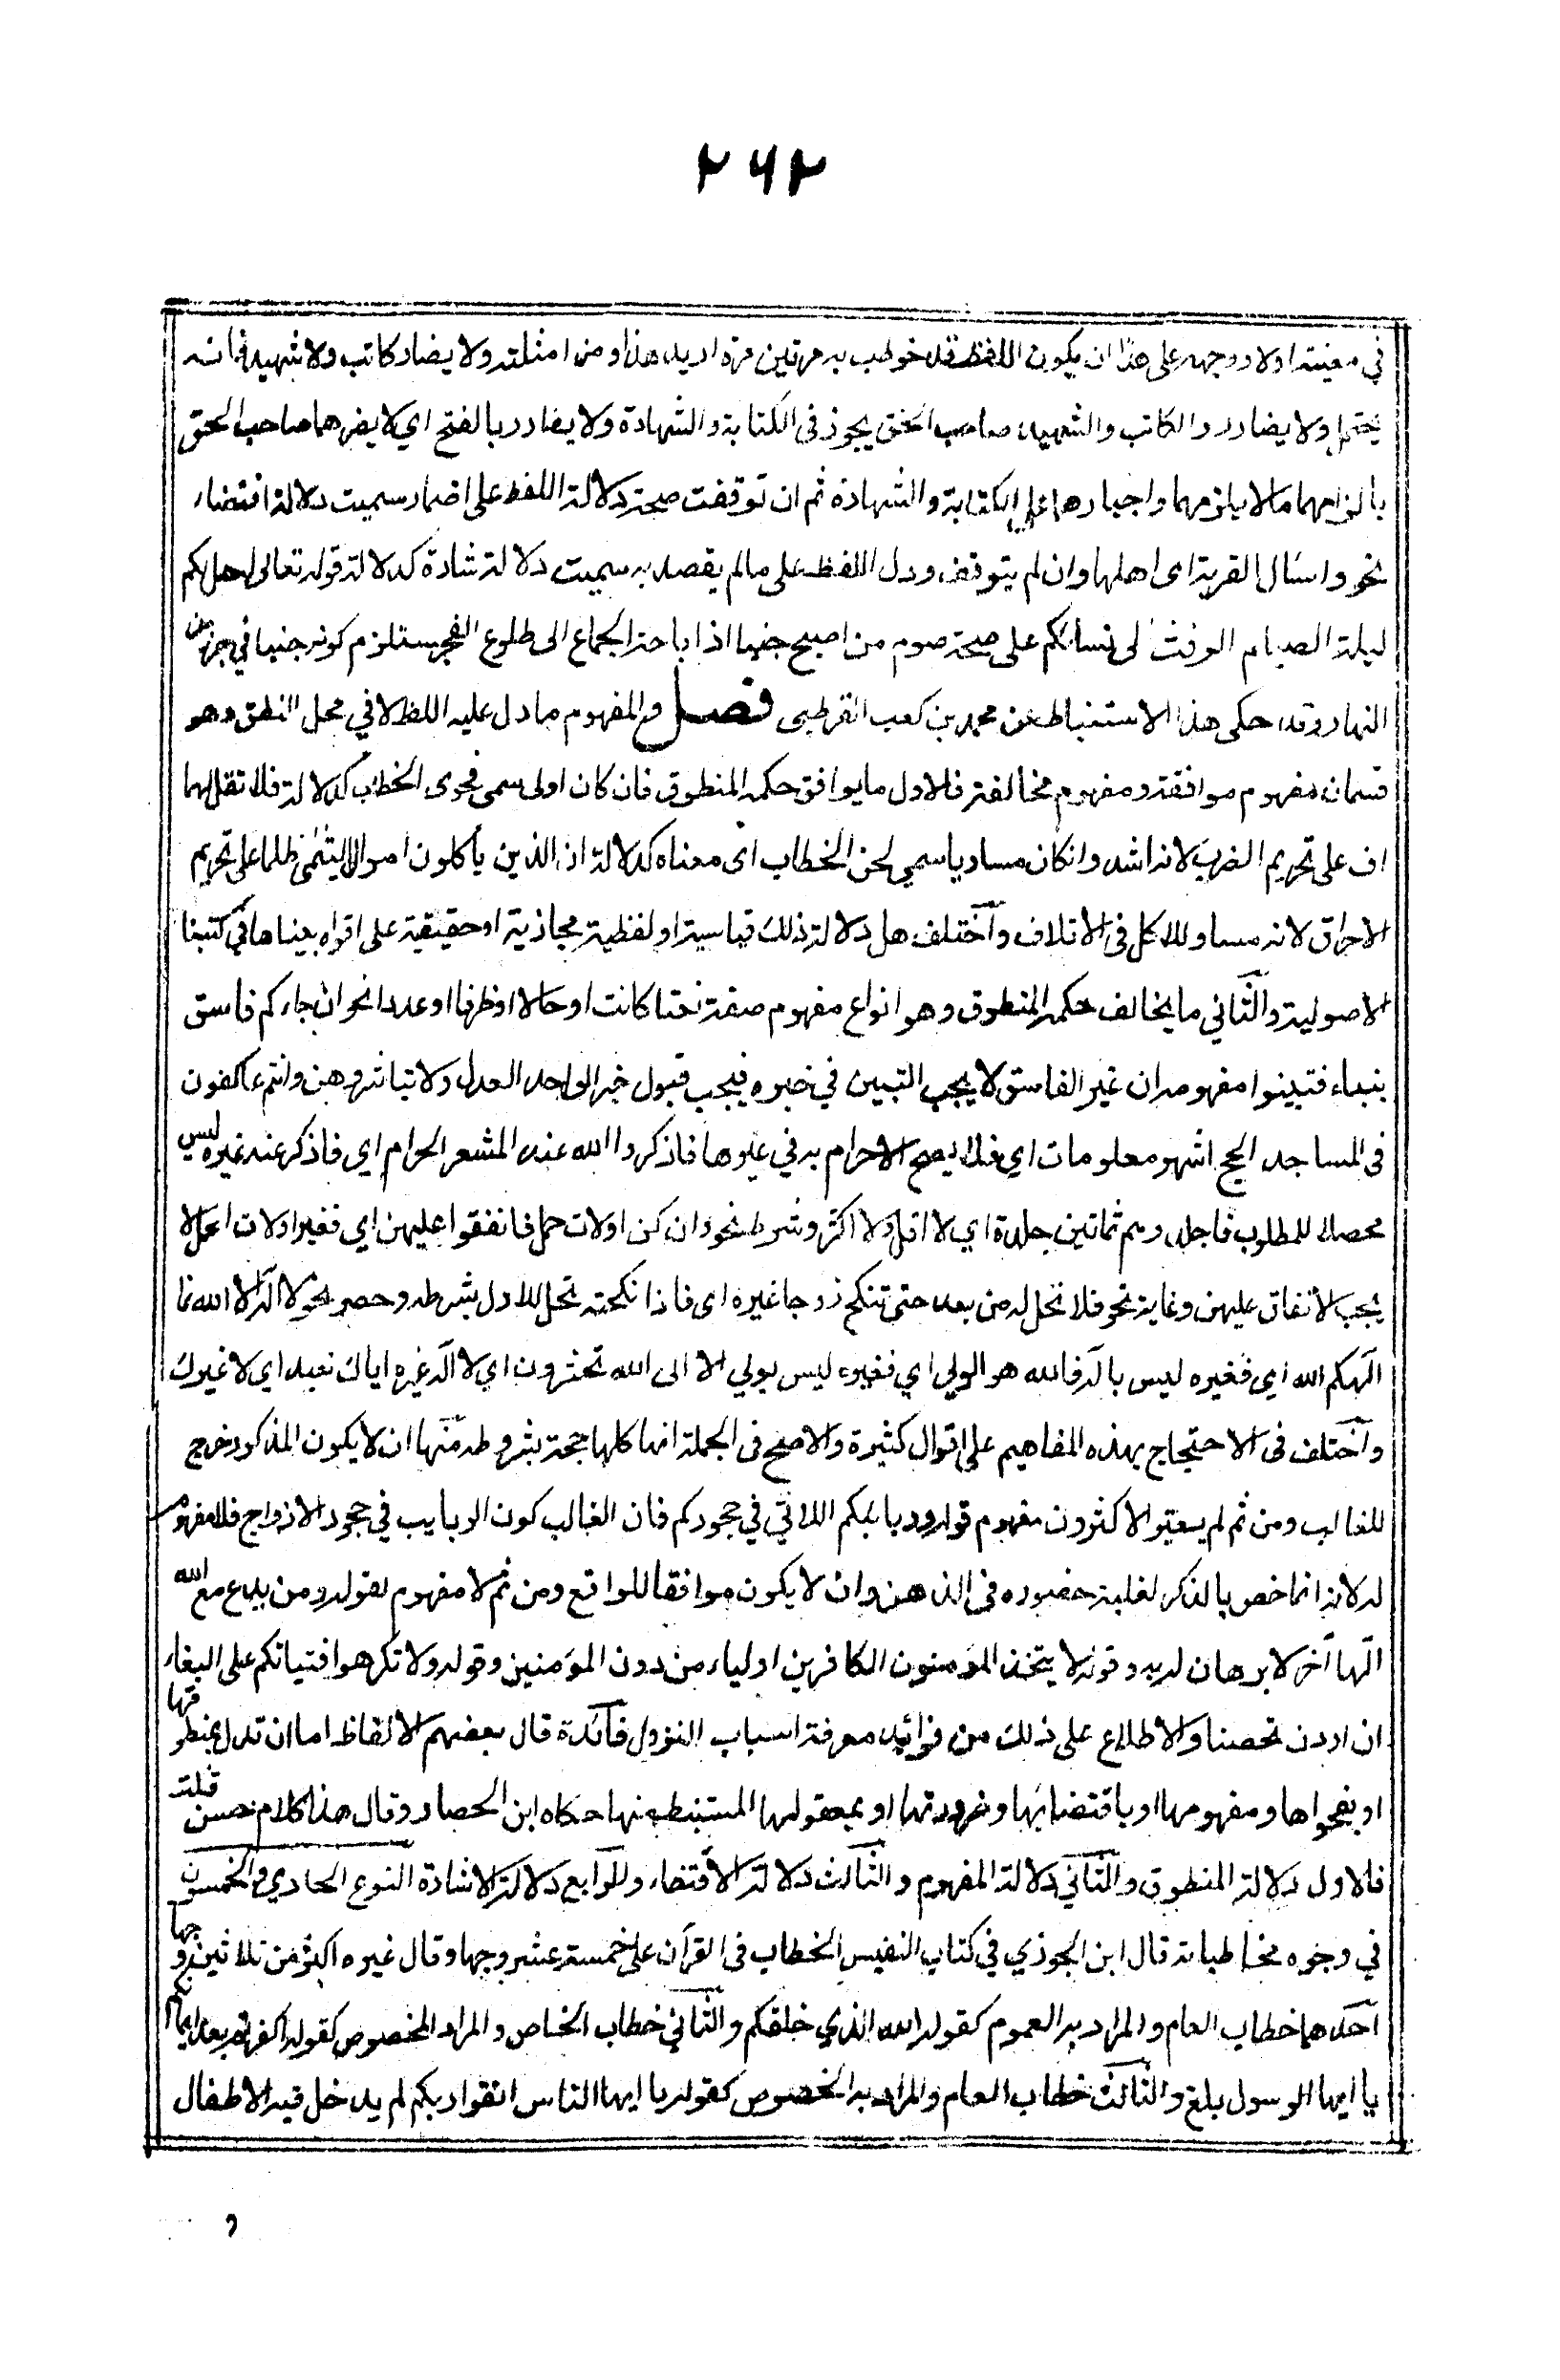 ٢٦٢
في معنييه اولا ووجهه على هذا ان يكون اللفظ قد خوطب به مرتين مرة اريد هذا ومن امثلته ولا يضار كاتب ولا شهيد فانه
يحتمل ولا يضارر الكاتب والشهيد صاحب الحق بجور في الكتابة والشهادة ولا يضارر بالفتح اي لا يضرهما صاحب الحق
بالزامهما مالا يلزمهما واجبارهما على الكتابة والشهادة ثم ان توقفت صحة دلالة اللفظ على اضمار سميت دلالة اقتضاء
نحو واسئال القرية اى اهلها وان لم يتوقف ودل اللفظ على مالم يقصد به سميت دلالة شارة كدلالة قوله تعالى احل لكم
ليلة الصيام الرفث الى نسائكم على صحة صوم من اصبح جنبا اذ اباحة الجماع الى طلوع الفجر يستلزم كونه جنبا في جزء من
النهار وقد حكى هذا الاستنباط عن محمد بن كعب القرظي فصل والمفهوم مادل عليه اللفظ لا في محل النطق وهو
قسمان مفهوم موافقة ومفهوم مخالفة فالاول ما يوافق حكمه المنطوق فان كان اولى سمى فحوى الخطاب كدلالة فلا تقل لهما
اف على تحريم الضرب لانه اشد وانكان مساويا سمي لحن الخطاب اى معناه كدلالة ان الذين ياكلون اموال اليتمى ظلما على تحريم
الاحراق لانه مساو للاكل في الاتلاف واختلف هل دلالة ذلك قياسية او لفظية مجازية او حقيقية على اقوال بيناها في كتبنا
الاصولية والثاني ما يخالف حكمه المنطوق وهو انواع مفهوم صفة نعتا كانت او حالا او ظرفا او عددا نحو ان جاءكم فاسق
بنباء فتبينوا مفهومه ان غير الفاسق لا يجب التبين في خبره فيجب قبول خبر الواحد العدل ولا تباشروهن وانتم عاكفون
في المساجد الحج اشهر معلومات اي فلا يصح الاحرام به في غيرها فاذكروا الله عند المشعر الحرام اي فاذكر عند غيره ليس
محصلا للمطلوب فاجلدوهم ثمانين جلدة اي لا اقل ولا اكثر وشرط نحو وان كن اولات حمل فانفقوا عليهن اي فغير اولات الحمل لا
يجب الانفاق عليهن وغاية نحو فلا تحل له من بعد حتى تنكح زوجا غيره اى فاذا نكحته تحل للاول بشرطه وحصر نحو لا اله الا الله انما
الهكم الله اي فغيره ليس باله فالله هو الولي اي فغيره ليس بولي لا الى الله تحشرون اي لا اله غيره اياك نعبد اي لا غيرك
واختلف في الاحتجاج بهذه المفاهيم على اقوال كثيرة والاصح في الجملة انها كلها حجة بشروطه منها ان لا يكون المذكور خرج
للغالب ومن ثم لم يعتبر الاكثرون مفهوم قوله وربائبكم اللاتي في حجوركم فان الغالب كون الربايب في حجور الازواج فلا مفهوم
له لانه انما خص بالذكر لغلبة حضوره في الذهن وان لا يكون موافقا للواقع ومن ثم لا مفهوم لقوله ومن يدع مع الله
الها آخر لا برهان له به وقوله لا يتخذ المؤمنون الكافرين اولياء من دون المؤمنين وقوله ولا تكرهوا فتياتكم على البغاء
ان اردن تحصنا والاطلاع على ذلك من فوائد معرفة اسباب النزول فائدة قال بعضهم الالفاظ اما ان تدل بمنطوقها
او بفحواها ومفهومها او باقتضائها وضرورتها او بمعقولها المستنبط منها حكاه ابن الحصار وقال هذا كلام حسن قلت
فالاول دلالة المنطوق والثاني دلالة المفهوم والثالث دلالة الاقتضاء والرابع دلالة الاشارة النوع الحادي والخمسون
في وجوه مخاطباته قال ابن الجوزي في كتاب النفيس الخطاب في القرآن على خمسة عشر وجها وقال غيره اكثر من ثلاثين وجها
احدها خطاب العام والمراد به العموم كقوله الله الذي خلقكم والثاني خطاب الخاص والمراد الخصوص كقوله اكفرتم بعد ايمانكم
يا ايها الرسول بلغ والثالث خطاب العام والمراد به الخصوص كقوله يا ايها الناس اتقوا ربكم لم يدخل فيه الاطفال